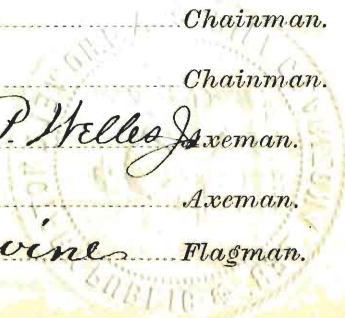 Chainman.
Chainman.
P. Welles Jr Axeman.
Axeman.
vine Flagman.